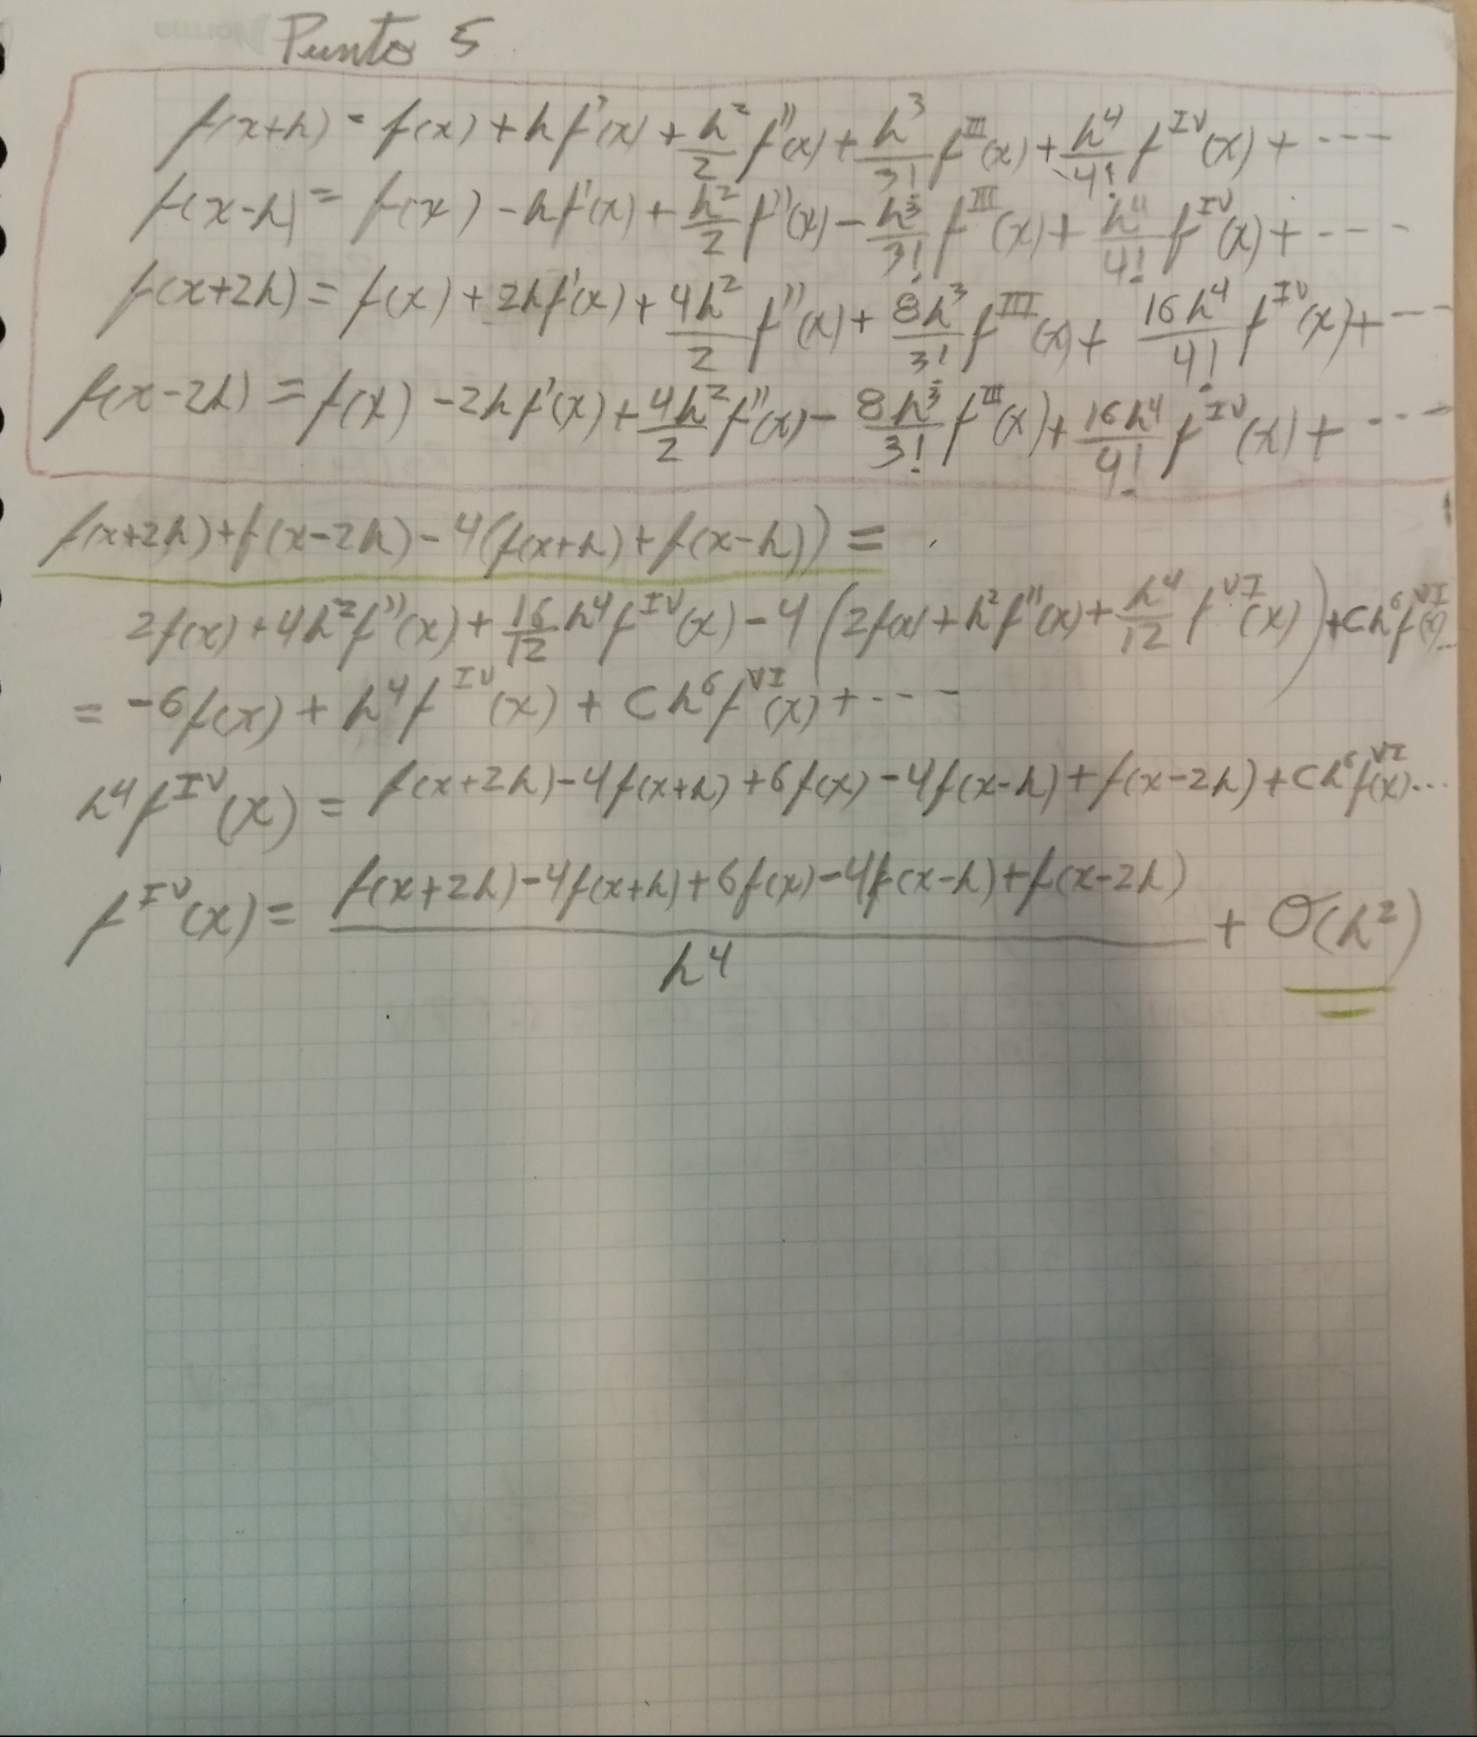 Punto 5
f(x+h) = f(x) + hf'(x) + h²/2 f''(x) + h³/3! f^III(x) + h⁴/4! f^IV(x) + ----
f(x-h) = f(x) - hf'(x) + h²/2 f''(x) - h³/3! f^III(x) + h⁴/4! f^IV(x) + ----
f(x+2h) = f(x) + 2hf'(x) + 4h²/2 f''(x) + 8h³/3! f^III(x) + 16h⁴/4! f^IV(x) + ---
f(x-2h) = f(x) - 2hf'(x) + 4h²/2 f''(x) - 8h³/3! f^III(x) + 16h⁴/4! f^IV(x) + ----
f(x+2h) + f(x-2h) - 4(f(x+h) + f(x-h)) =
2f(x) + 4h²f''(x) + 16/12 h⁴f^IV(x) - 4(2f(x) + h²f''(x) + h⁴/12 f^VI(x)) + Ch⁶f^VI(x)--
= -6f(x) + h⁴f^IV(x) + Ch⁶f^VI(x) + ----
h⁴f^IV(x) = f(x+2h) - 4f(x+h) + 6f(x) - 4f(x-h) + f(x-2h) + Ch⁶f^VI(x)...
f^IV(x) = (f(x+2h) - 4f(x+h) + 6f(x) - 4f(x-h) + f(x-2h))/h⁴ + O(h²)